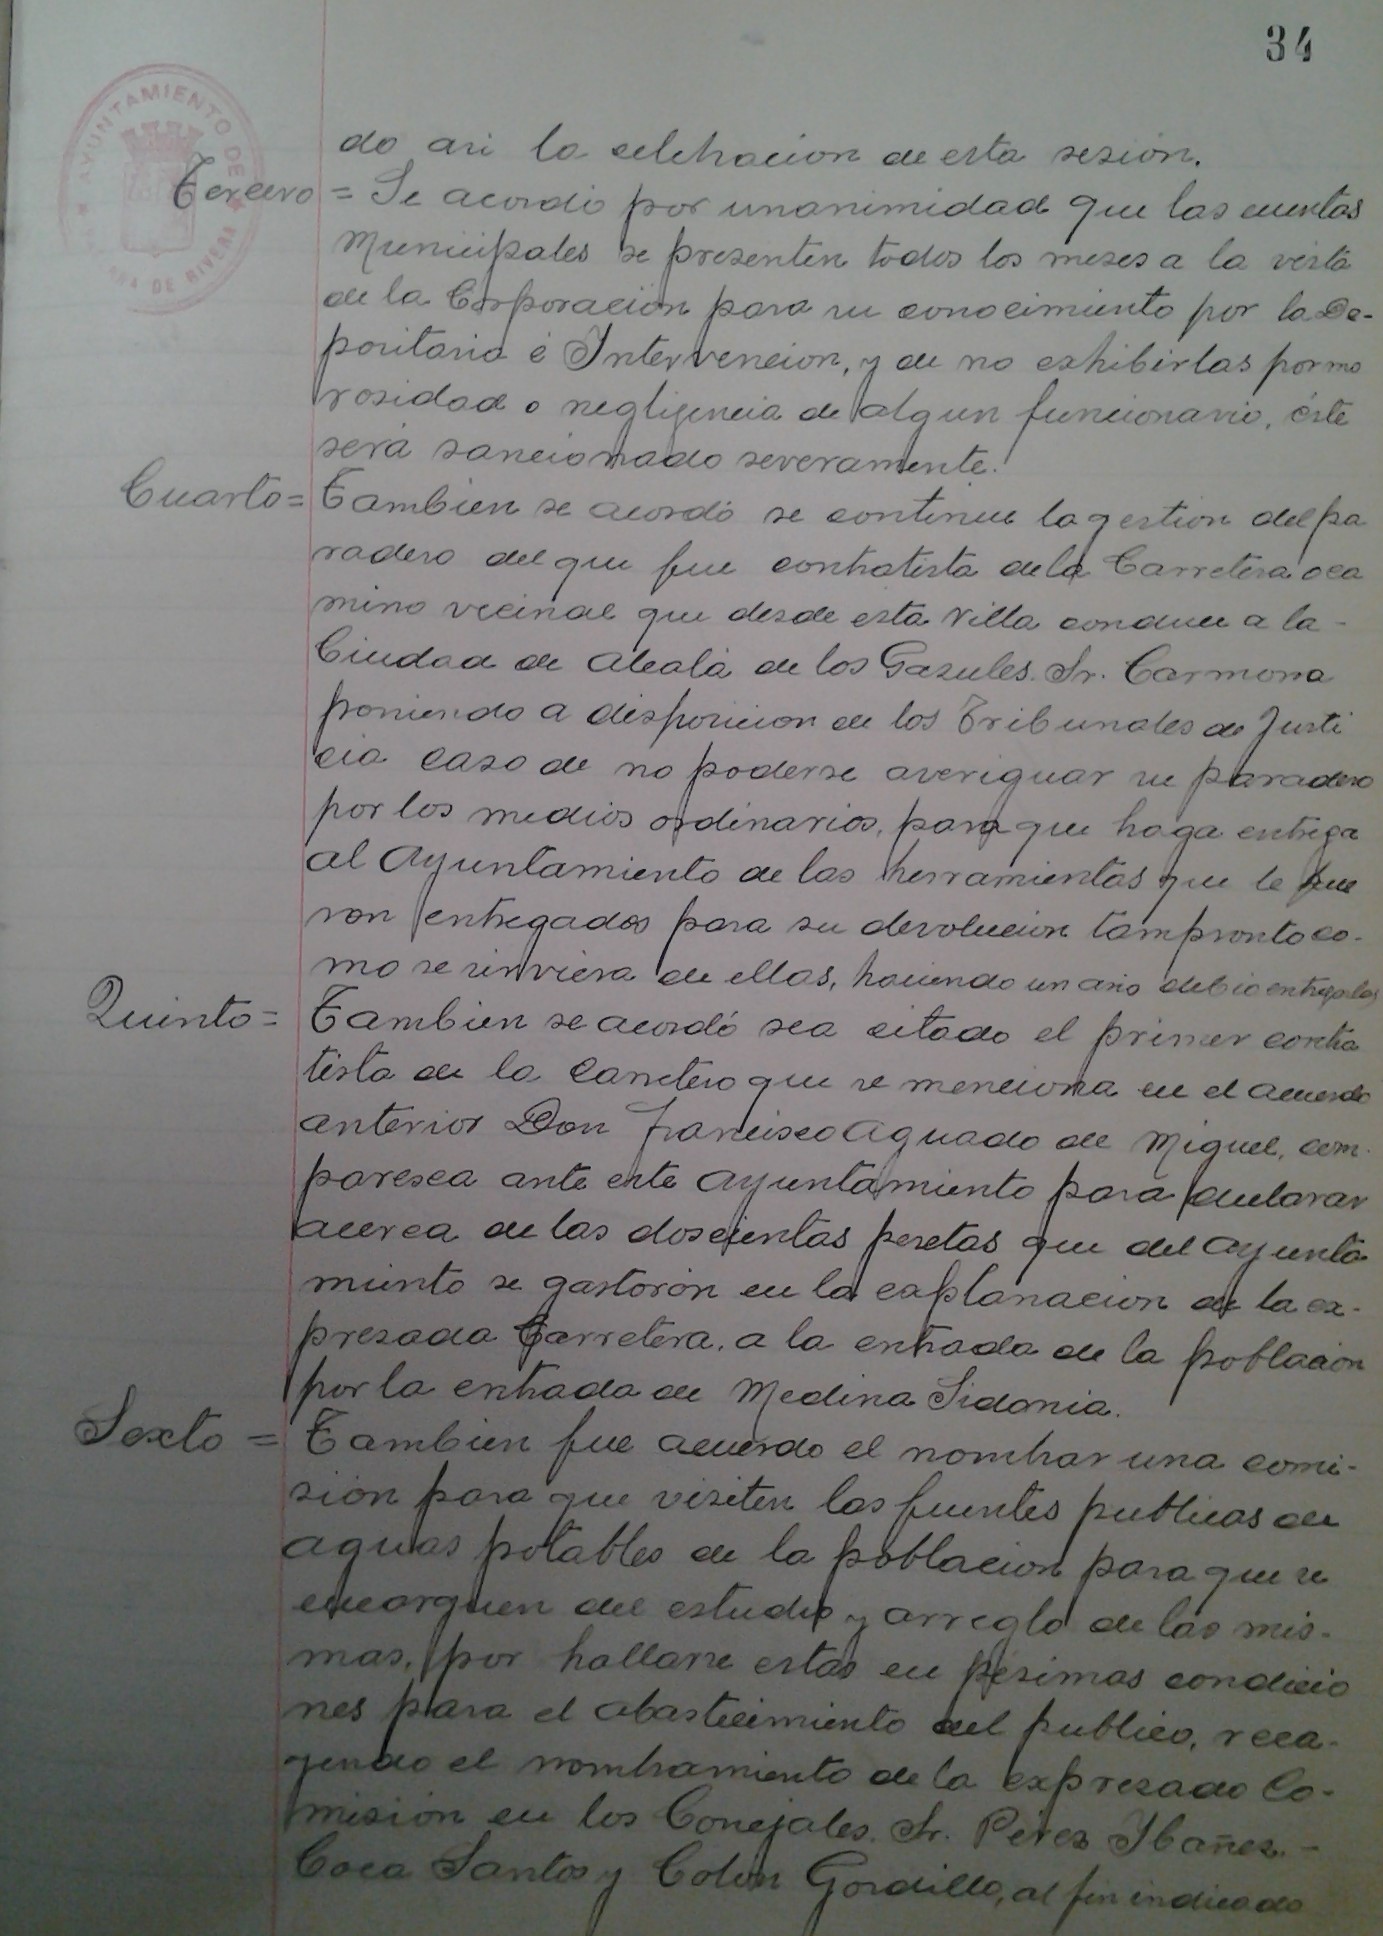 34
AYUNTAMIENTO DE
DE RIVERA
do asi la celebracion de esta sesión.
Tercero = Se acordó por unanimidad que las cuentas
Municipales se presenten todos los meses a la vista
de la Corporación para su conocimiento por la De-
positaria é Intervencion, y de no exhibirlas por mo
rosidad o negligencia de algun funcionario, éste
será sancionado severamente.
Cuarto = Tambien se acordó se continue la gestion del pa
radero del que fue contratista de la Carretera o ca
mino vecinal que desde esta Villa conduce a la -
Ciudad de Alcalá de los Gazules. Sr. Carmona
poniendo a disposicion de los Tribunales de Justi
cia caso de no poderse averiguar su paradero
por los medios ordinarios, para que haga entrega
al Ayuntamiento de las herramientas que le fue
ron entregados para su devolucion tampronto co-
mo se sirviera de ellas, haciendo un año debio entregarlas
Quinto = Tambien se acordó sea citado el primer contra
tista de la carretera que se menciona en el acuerdo
anterior Don Francisco Aguado de Miguel, com-
paresca ante este Ayuntamiento para declarar
acerca de las doscientas pesetas que del Ayunta
miento se gastaron en la explanacion de la ex-
presada Carretera, a la entrada de la poblacion
por la entrada de Medina Sidonia.
Sexto = Tambien fue acuerdo el nombrar una comi-
sión para que visiten las fuentes publicas de
aguas potables de la poblacion para que se
encarguen del estudio y arreglo de las mis-
mas, por hallarse estas en pésimas condicio
nes para el abastecimiento del publico, reca-
yendo el nombramiento de la expresada Co-
misión en los Concejales. Sr. Pérez Ibañez. -
Coca Santos y Colon Gordillo, al fin indicado